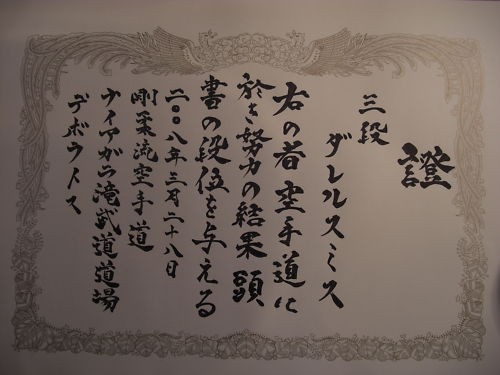 證
三段
ダレルスミス
右の者空手道に
於き努力の結果頭
書の段位を与える
二〇〇八年三月二十八日
剛柔流空手道
ナイアガラ滝武道道場
デボウトス